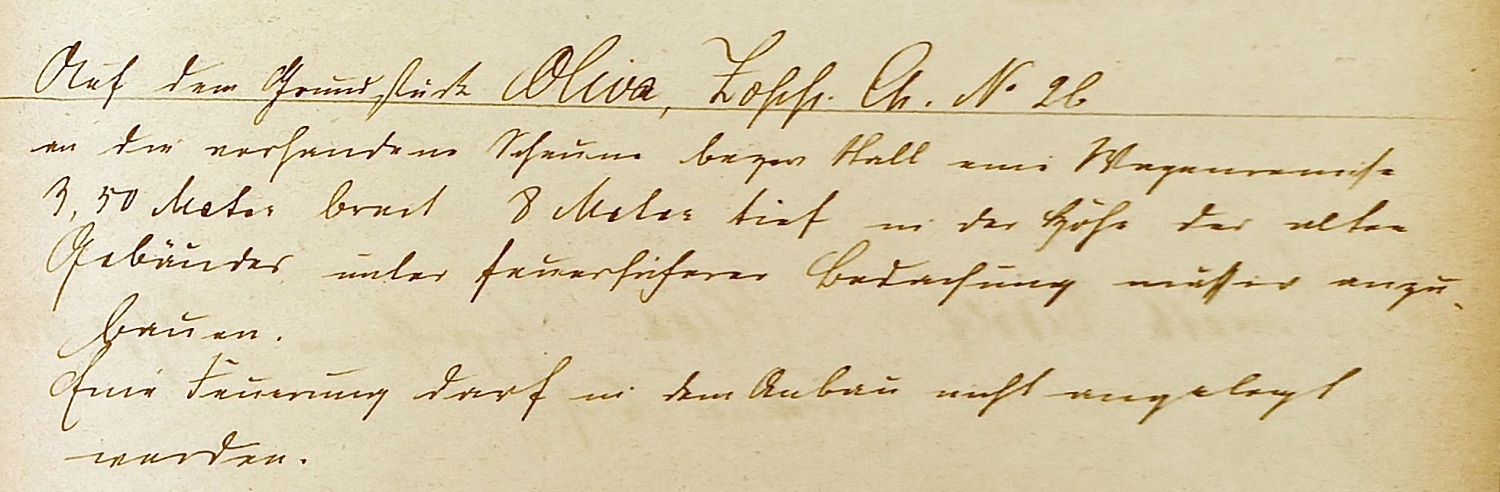 Auf dem Grundstück Oliva, Zopp. Ch. No 26
an die vorhandene Scheune bezw Stall eine Wagenremise
3,50 Meter breit 8 Meter tief in der Höhe des alten
Gebäudes unter feuersicherer Bedachung massiv anzu-
bauen.
Eine Feuerung darf in dem Anbau nicht angelegt
werden.